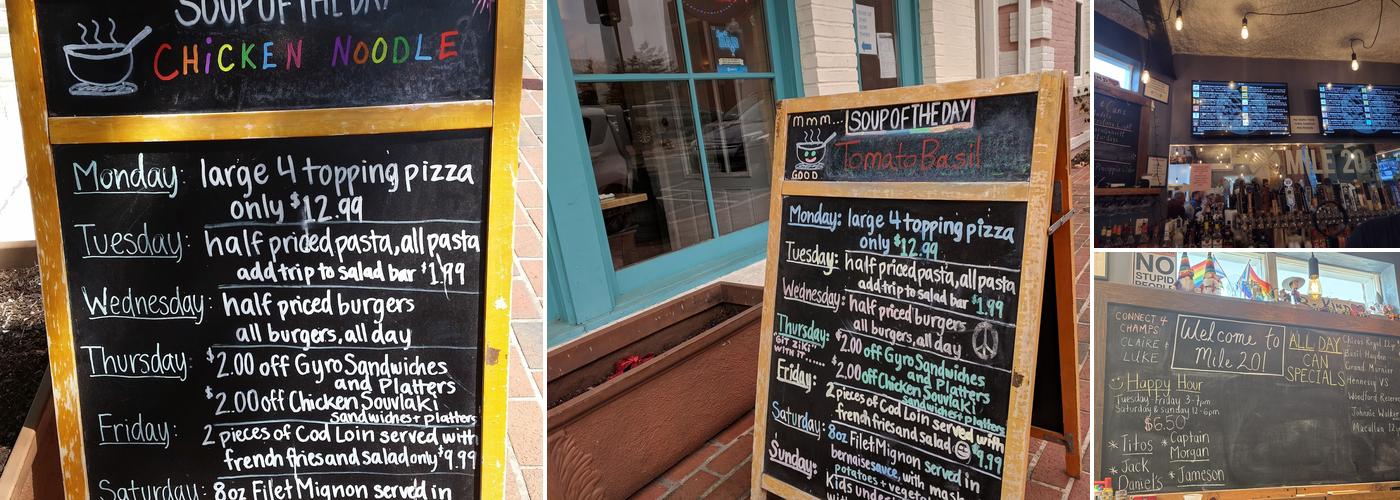 SOUP OF THE DAY
CHiCKEN NOODLE
Monday: large 4 topping pizza
only $12.99
Tuesday: half priced pasta, all pasta
add trip to salad bar $1.99
Wednesday: half priced burgers
all burgers, all day
Thursday: $2.00 off Gyro Sandwiches
and Platters
$2.00 off Chicken Souvlaki
sandwiches + platters
Friday: 2 pieces of Cod Loin served with
french fries and salad only $9.99
Saturday: 8oz Filet Mignon served in
mmm... SOUP OF THE DAY
Tomato Basil
GOOD
Monday: large 4 topping pizza
only $12.99
Tuesday: half priced pasta, all pasta
add trip to salad bar $1.99
Wednesday: half priced burgers
all burgers, all day
Thursday: $2.00 off Gyro Sandwiches
"GIT ZIKI" and Platters
WITH IT..... $2.00 off Chicken Souvlaki
sandwiches + platters
Friday: 2 pieces of Cod Loin served with
french fries and salad $9.99
Saturday: 8oz Filet Mignon served in
bernaise sauce, with mash
potatoes + vegetable
Sunday: Kids under
MILE 20
NO
STUPID
PEOPLE
CONNECT 4
CHAMPS
CLAIRE +
LUKE
Welcome to
Mile 201
ALL DAY
CAN
SPECIALS
Chivas Regal 12yr
Basil Hayden
Grand Marnier
Hennessy VS
Woodford Reserve
Johnnie Walker
Macallan 12
Happy Hour
Tuesday-Friday 3-7pm
Saturday & Sunday 12-6pm
$6.50
* Titos * Captain
Morgan
* Jack
Daniel's * Jameson